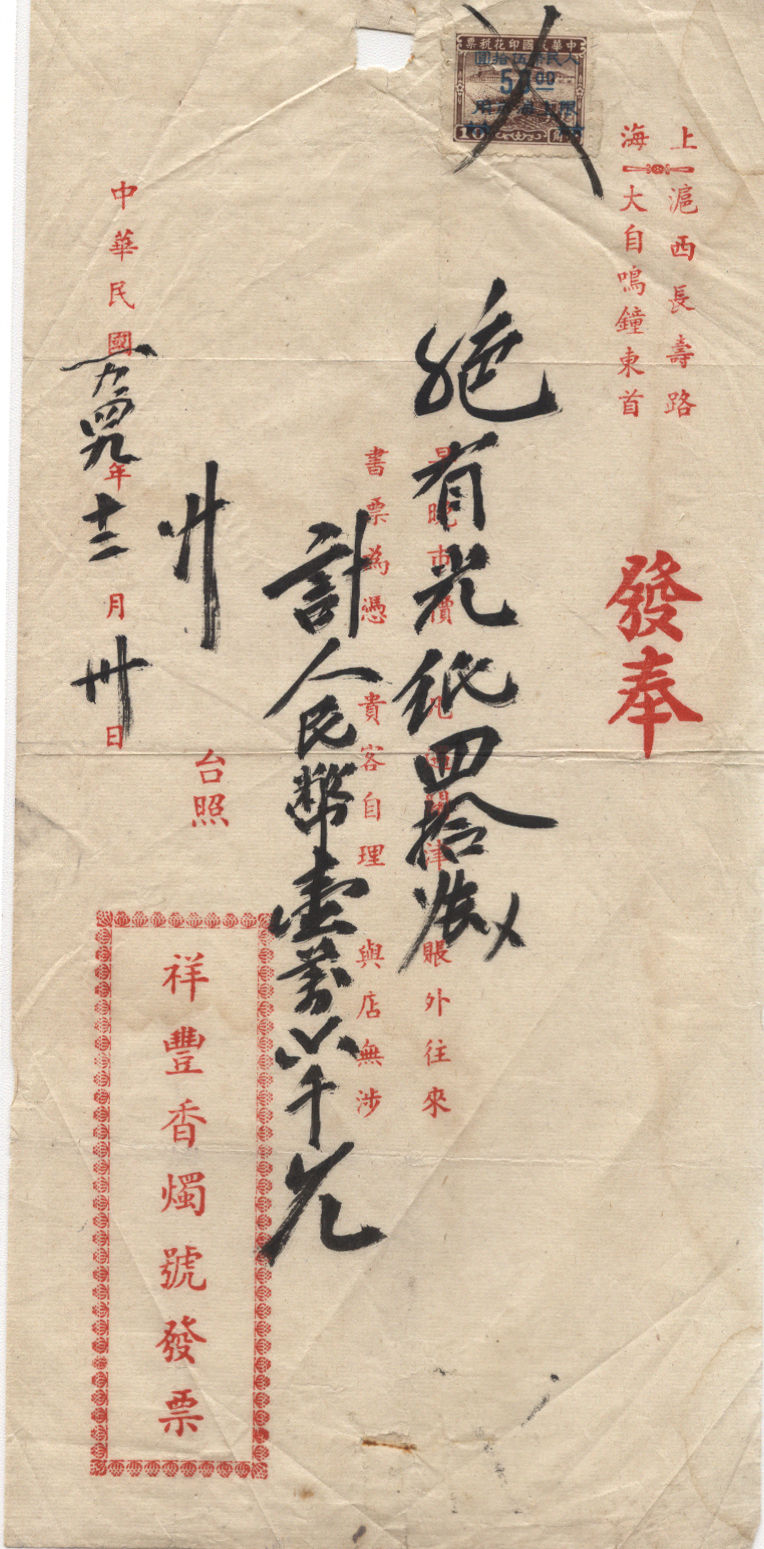 中華民國印花稅票
人民幣伍拾圓
50.00
10
上海
滬西長壽路
大自鳴鐘東首
發奉
有光紙四拾張
早晚市價 凡遇關津 賬外往來
書票為憑 貴客自理 與店無涉
計人民幣壹萬六千元
台照
中華民國一九四九年十二月卅日
祥豐香燭號發票